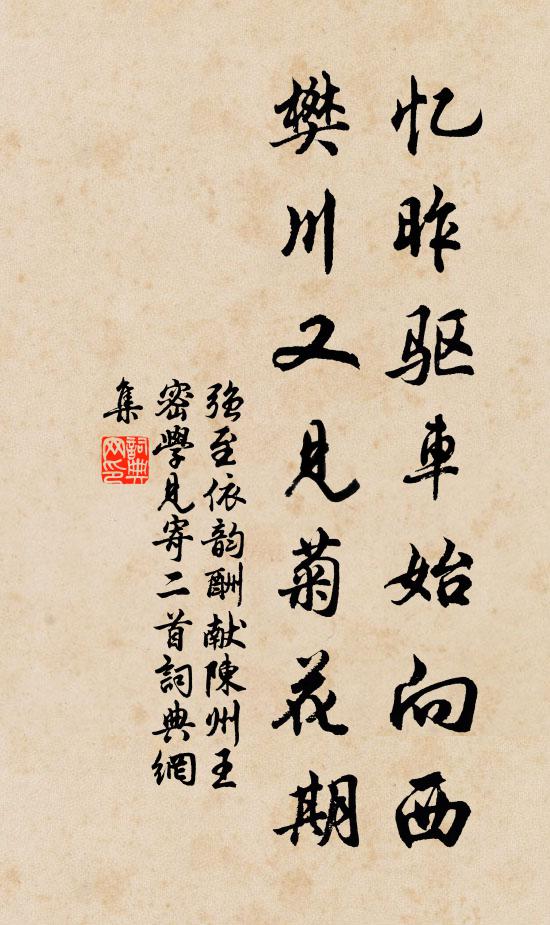 忆昨驱車始向西
樊川又見菊花期
强至依韵酬献陳州王
密學見寄二首詞典網
集
詞典
网印